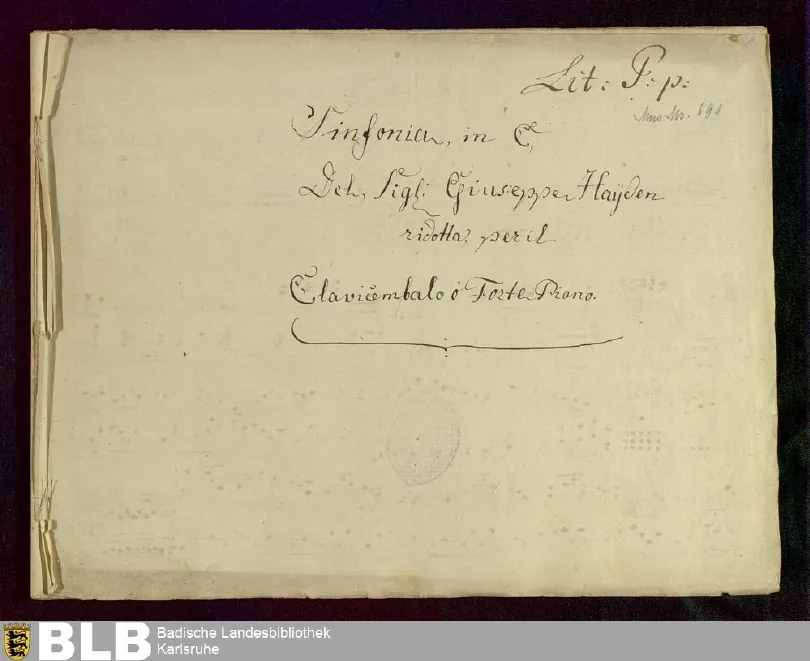 Lit: P: p:
Mus. Ms. 691
Sinfonia, in C,
Del, Sigl: Giuseppe, Haÿden
ridotta, per il
Clavicembalo ó Forte Piano.
BLB Badische Landesbibliothek
Karlsruhe